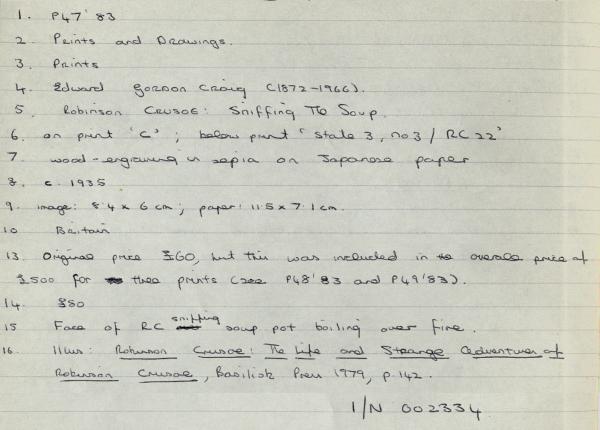 1. P47'83
2. Prints and Drawings.
3. Prints
4. Edward Gordon Craig (1872-1966).
5. Robinson Crusoe: Sniffing The Soup.
6. on print 'C'; below print 'State 3, no 3 / RC 22'
7 wood-engraving in sepia on Japanese paper
8. c. 1935
9. image: 8.4 x 6 cm; paper: 11.5 x 7.1 cm.
10 Britain
13. Original price £60, but this was included in the overall price of
£500 for three prints (see P48'83 and P49'83).
14. £80
15 Face of RC sniffing soup pot boiling over fire.
16. Illus: Robinson Crusoe: The Life and Strange Adventures of
Robinson Crusoe, Basilisk Press 1979, p.142.
I/N 002334